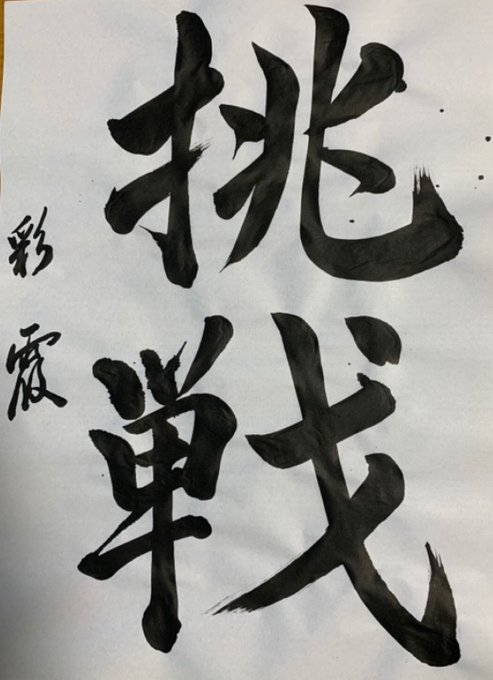 挑戦
彩霞